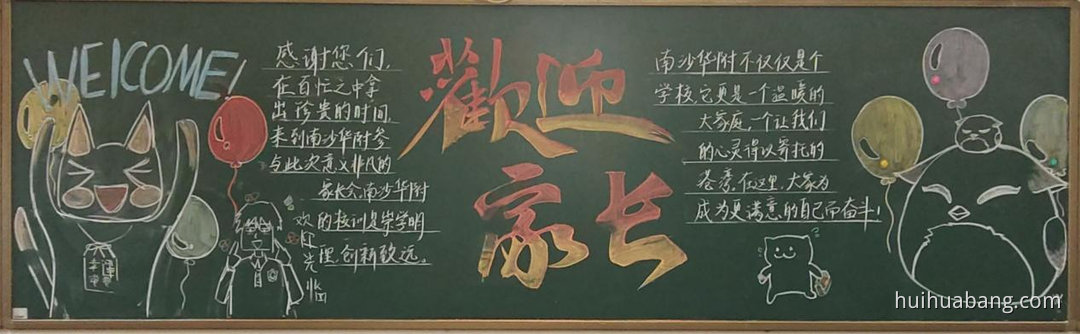 WELCOME!
感谢您们,
在百忙之中拿
出珍贵的时间,
来到南沙华附参
与此次意义非凡的
家长会,南沙华附
的校训是崇学明
理,创新致远。
欢迎光临
歡迎
家长
南沙华附不仅仅是个
学校,它更是一个温暖的
大家庭,一个让我们
的心灵得以寄托的
港湾,在这里,大家为
成为更满意的自己而奋斗!
huihuabang.com